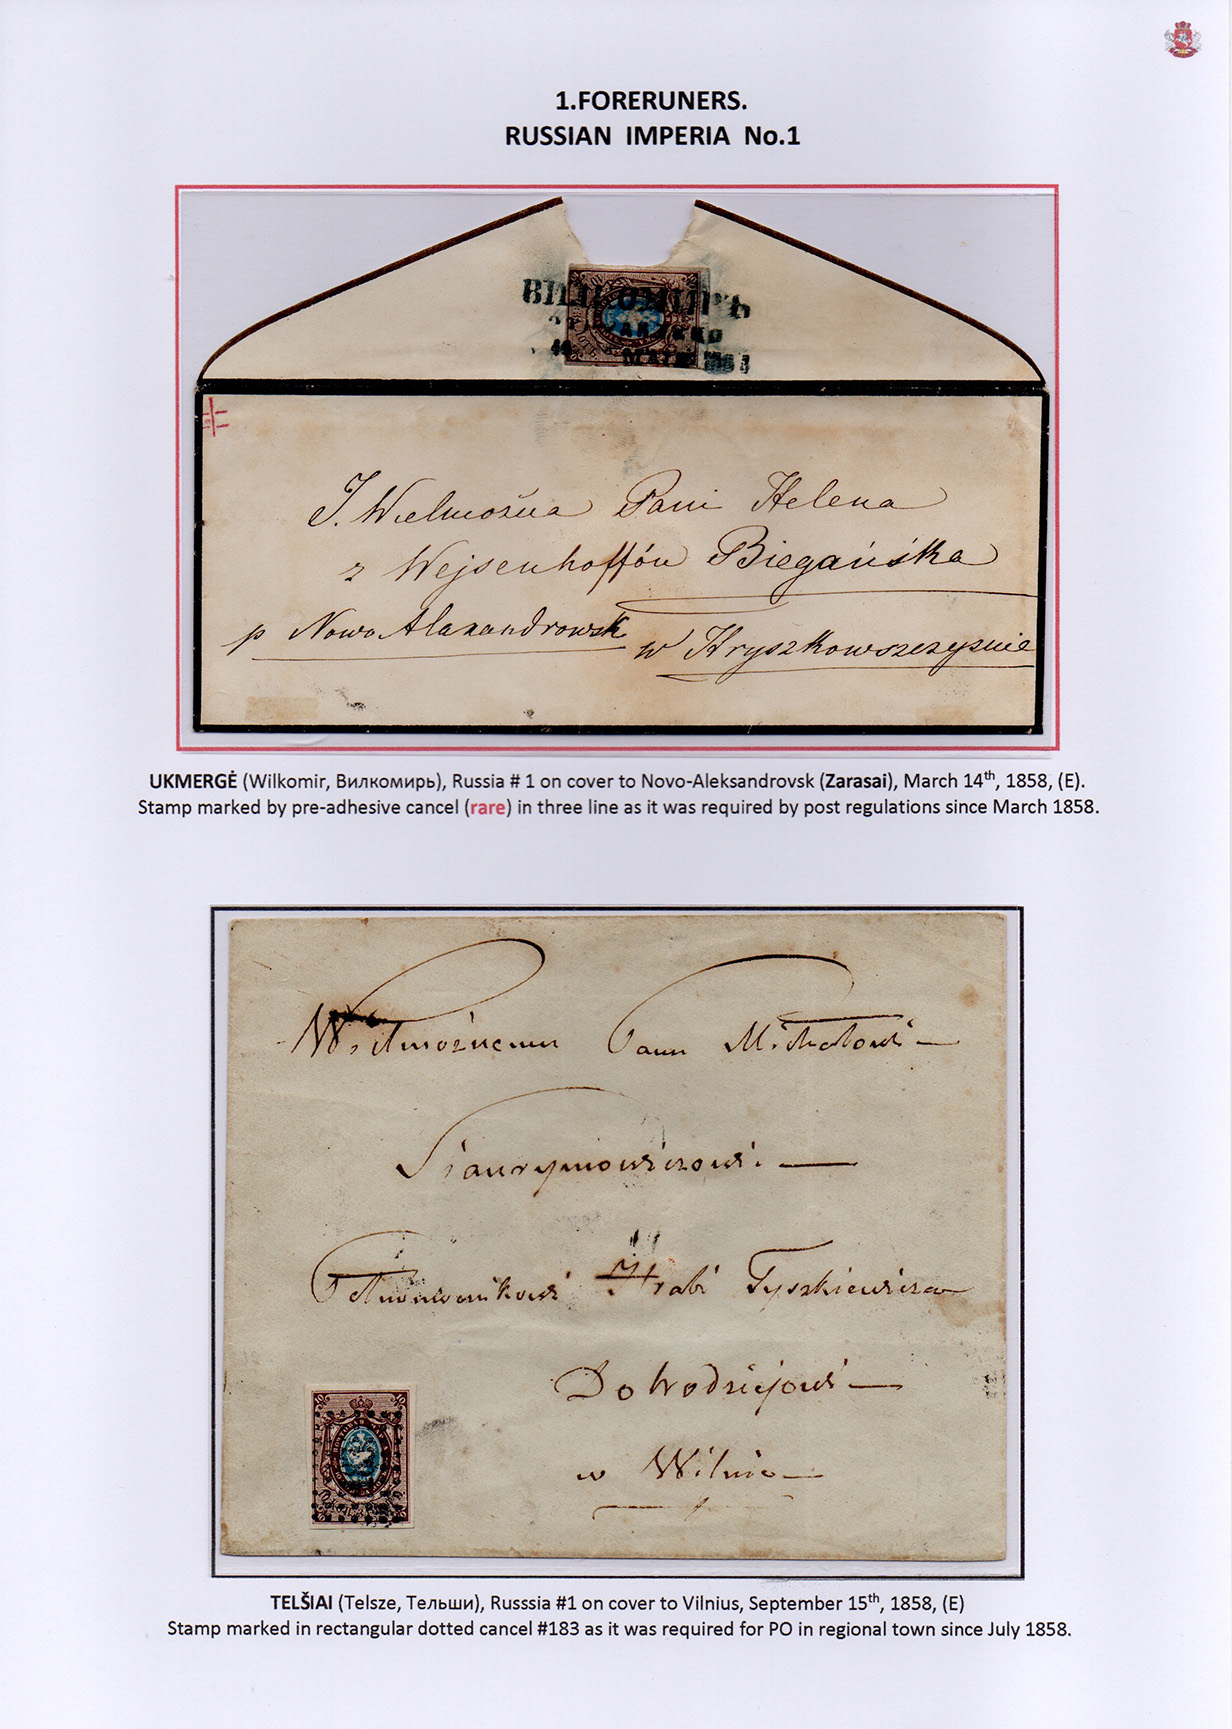 1.FORERUNERS.
RUSSIAN IMPERIA No.1
ВИЛКОМИРЪ
J. Wielmożna Pani Helena
z Wejsenhoffów Biegańska
p Nowo Alaxandrowsk
w Hryszkowszczyznie
UKMERGĖ (Wilkomir, Вилкомирь), Russia # 1 on cover to Novo-Aleksandrovsk (Zarasai), March 14th, 1858, (E).
Stamp marked by pre-adhesive cancel (rare) in three line as it was required by post regulations since March 1858.
Wielmożnemu Panu Michałowi
Pełnomocnikowi Hrabi Tyszkiewicza
Dobrodziejowi
w Wilnie
TELŠIAI (Telsze, Тельши), Russsia #1 on cover to Vilnius, September 15th, 1858, (E)
Stamp marked in rectangular dotted cancel #183 as it was required for PO in regional town since July 1858.